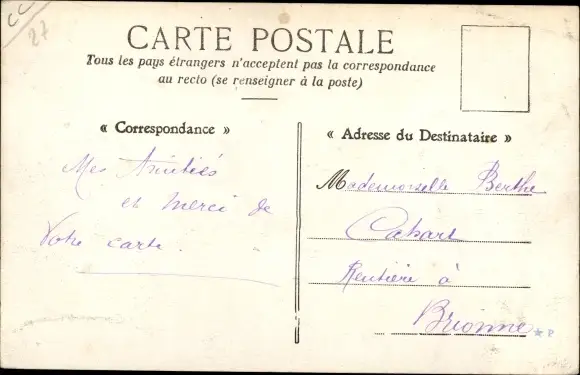 CC
27
CARTE POSTALE
Tous les pays étrangers n'acceptent pas la correspondance
au recto (se renseigner à la poste)
« Correspondance »
Mes Amitiés
et merci de
Votre carte.
« Adresse du Destinataire »
Mademoiselle Berthe
Cabart
Rentière à
Brionne